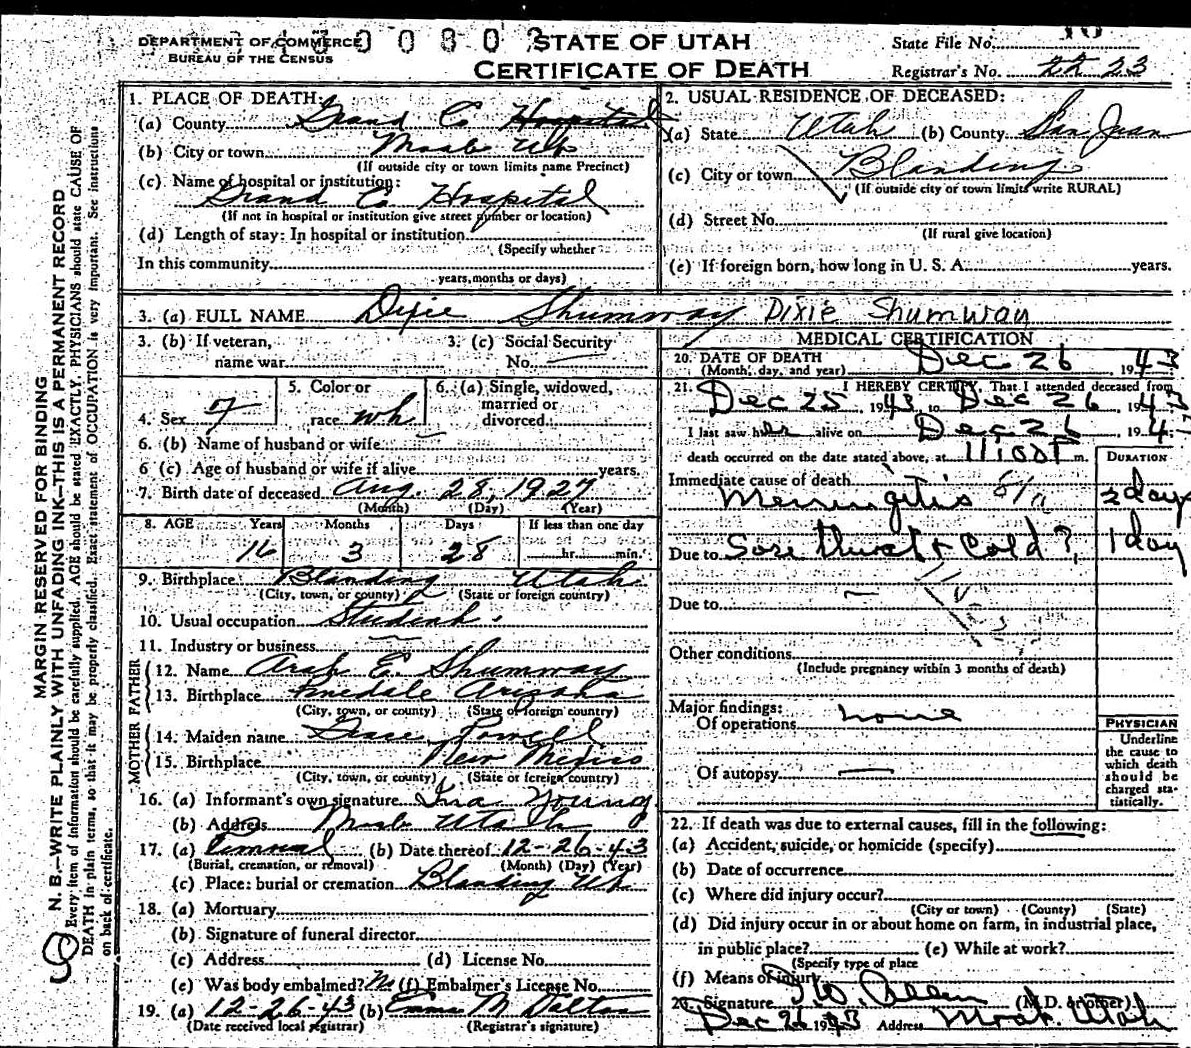 DEPARTMENT OF COMMERCE
BUREAU OF THE CENSUS
STATE OF UTAH
CERTIFICATE OF DEATH
State File No.
Registrar's No. 23
MARGIN RESERVED FOR BINDING
N. B.—WRITE PLAINLY WITH UNFADING INK—THIS IS A PERMANENT RECORD
Every item of information should be carefully supplied. AGE should be stated EXACTLY. PHYSICIANS should state CAUSE OF
DEATH in plain terms, so that it may be properly classified. Exact statement of OCCUPATION is very important. See instructions
on back of certificate.
1. PLACE OF DEATH:
(a) County Grand Co Hospital
(b) City or town Moab Ut
(If outside city or town limits name Precinct)
(c) Name of hospital or institution:
Grand Co Hospital
(If not in hospital or institution give street number or location)
(d) Length of stay: In hospital or institution
(Specify whether
In this community
years, months or days)
2. USUAL RESIDENCE OF DECEASED:
(a) State Utah (b) County San Juan
(c) City or town Blanding
(If outside city or town limits write RURAL)
(d) Street No.
(If rural give location)
(e) If foreign born, how long in U. S. A. years.
3. (a) FULL NAME Dixie Shumway Dixie Shumway
3. (b) If veteran,
name war
3. (c) Social Security
No.
4. Sex F
5. Color or
race wh
6. (a) Single, widowed,
married or
divorced
6. (b) Name of husband or wife
6 (c) Age of husband or wife if alive years.
7. Birth date of deceased Aug. 28, 1927
(Month) (Day) (Year)
8. AGE Years Months Days If less than one day
16 3 28 hr. min.
9. Birthplace Blanding Utah
(City, town, or county) (State or foreign country)
10. Usual occupation Student
11. Industry or business
FATHER
12. Name Arah E. Shumway
13. Birthplace Pinedale Arizona
(City, town, or county) (State or foreign country)
MOTHER
14. Maiden name Grace Powell
15. Birthplace New Mexico
(City, town, or county) (State or foreign country)
16. (a) Informant's own signature Ina Young
(b) Address Moab Utah
17. (a) Removal (b) Date thereof 12-26-43
(Burial, cremation, or removal) (Month) (Day) (Year)
(c) Place: burial or cremation Blanding Ut
18. (a) Mortuary
(b) Signature of funeral director
(c) Address (d) License No.
(e) Was body embalmed? No (f) Embalmer's License No.
19. (a) 12-26-43 (b) Emma M Dalton
(Date received local registrar) (Registrar's signature)
MEDICAL CERTIFICATION
20. DATE OF DEATH
(Month, day, and year) Dec 26, 1943
21. I HEREBY CERTIFY, That I attended deceased from
Dec 25, 1943 to Dec 26 1943
I last saw her alive on Dec 26 194
death occurred on the date stated above, at 11:00 P m.
DURATION
Immediate cause of death
Meningitis 2 days
Due to Sore throat + Cold? 1 day
Due to
Other conditions
(Include pregnancy within 3 months of death)
Major findings:
Of operations none
Of autopsy
PHYSICIAN
Underline
the cause to
which death
should be
charged sta-
tistically.
22. If death was due to external causes, fill in the following:
(a) Accident, suicide, or homicide (specify)
(b) Date of occurrence
(c) Where did injury occur?
(City or town) (County) (State)
(d) Did injury occur in or about home on farm, in industrial place,
in public place? (e) While at work?
(Specify type of place
(f) Means of injury
Signature Allen (M.D. or other)
Dec 26 1943 Address Moab. Utah